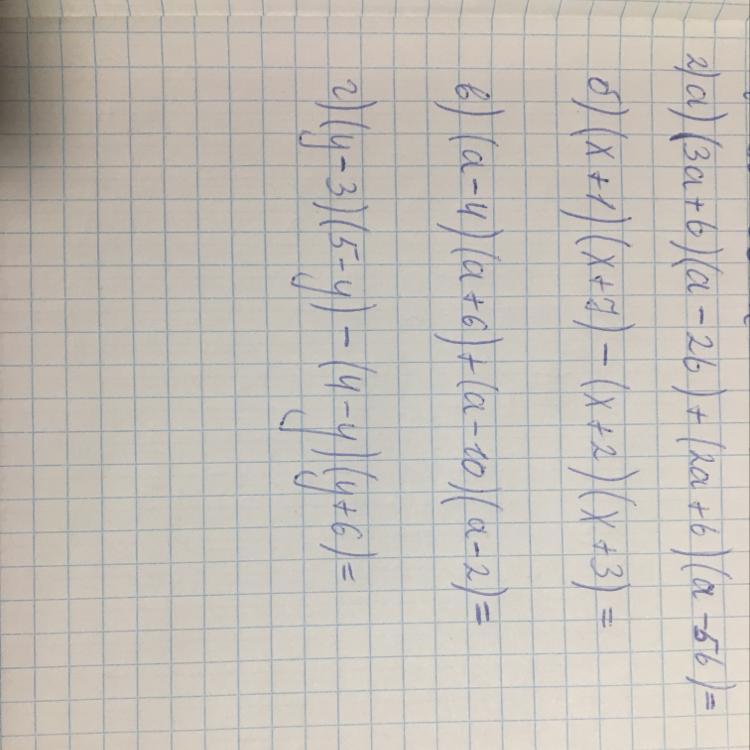 2) а) (3a+b)(a-2b)+(2a+b)(a-5b)=
б) (x+1)(x+7)-(x+2)(x+3)=
в) (a-4)(a+6)+(a-10)(a-2)=
г) (y-3)(5-y)-(4-y)(y+6)=